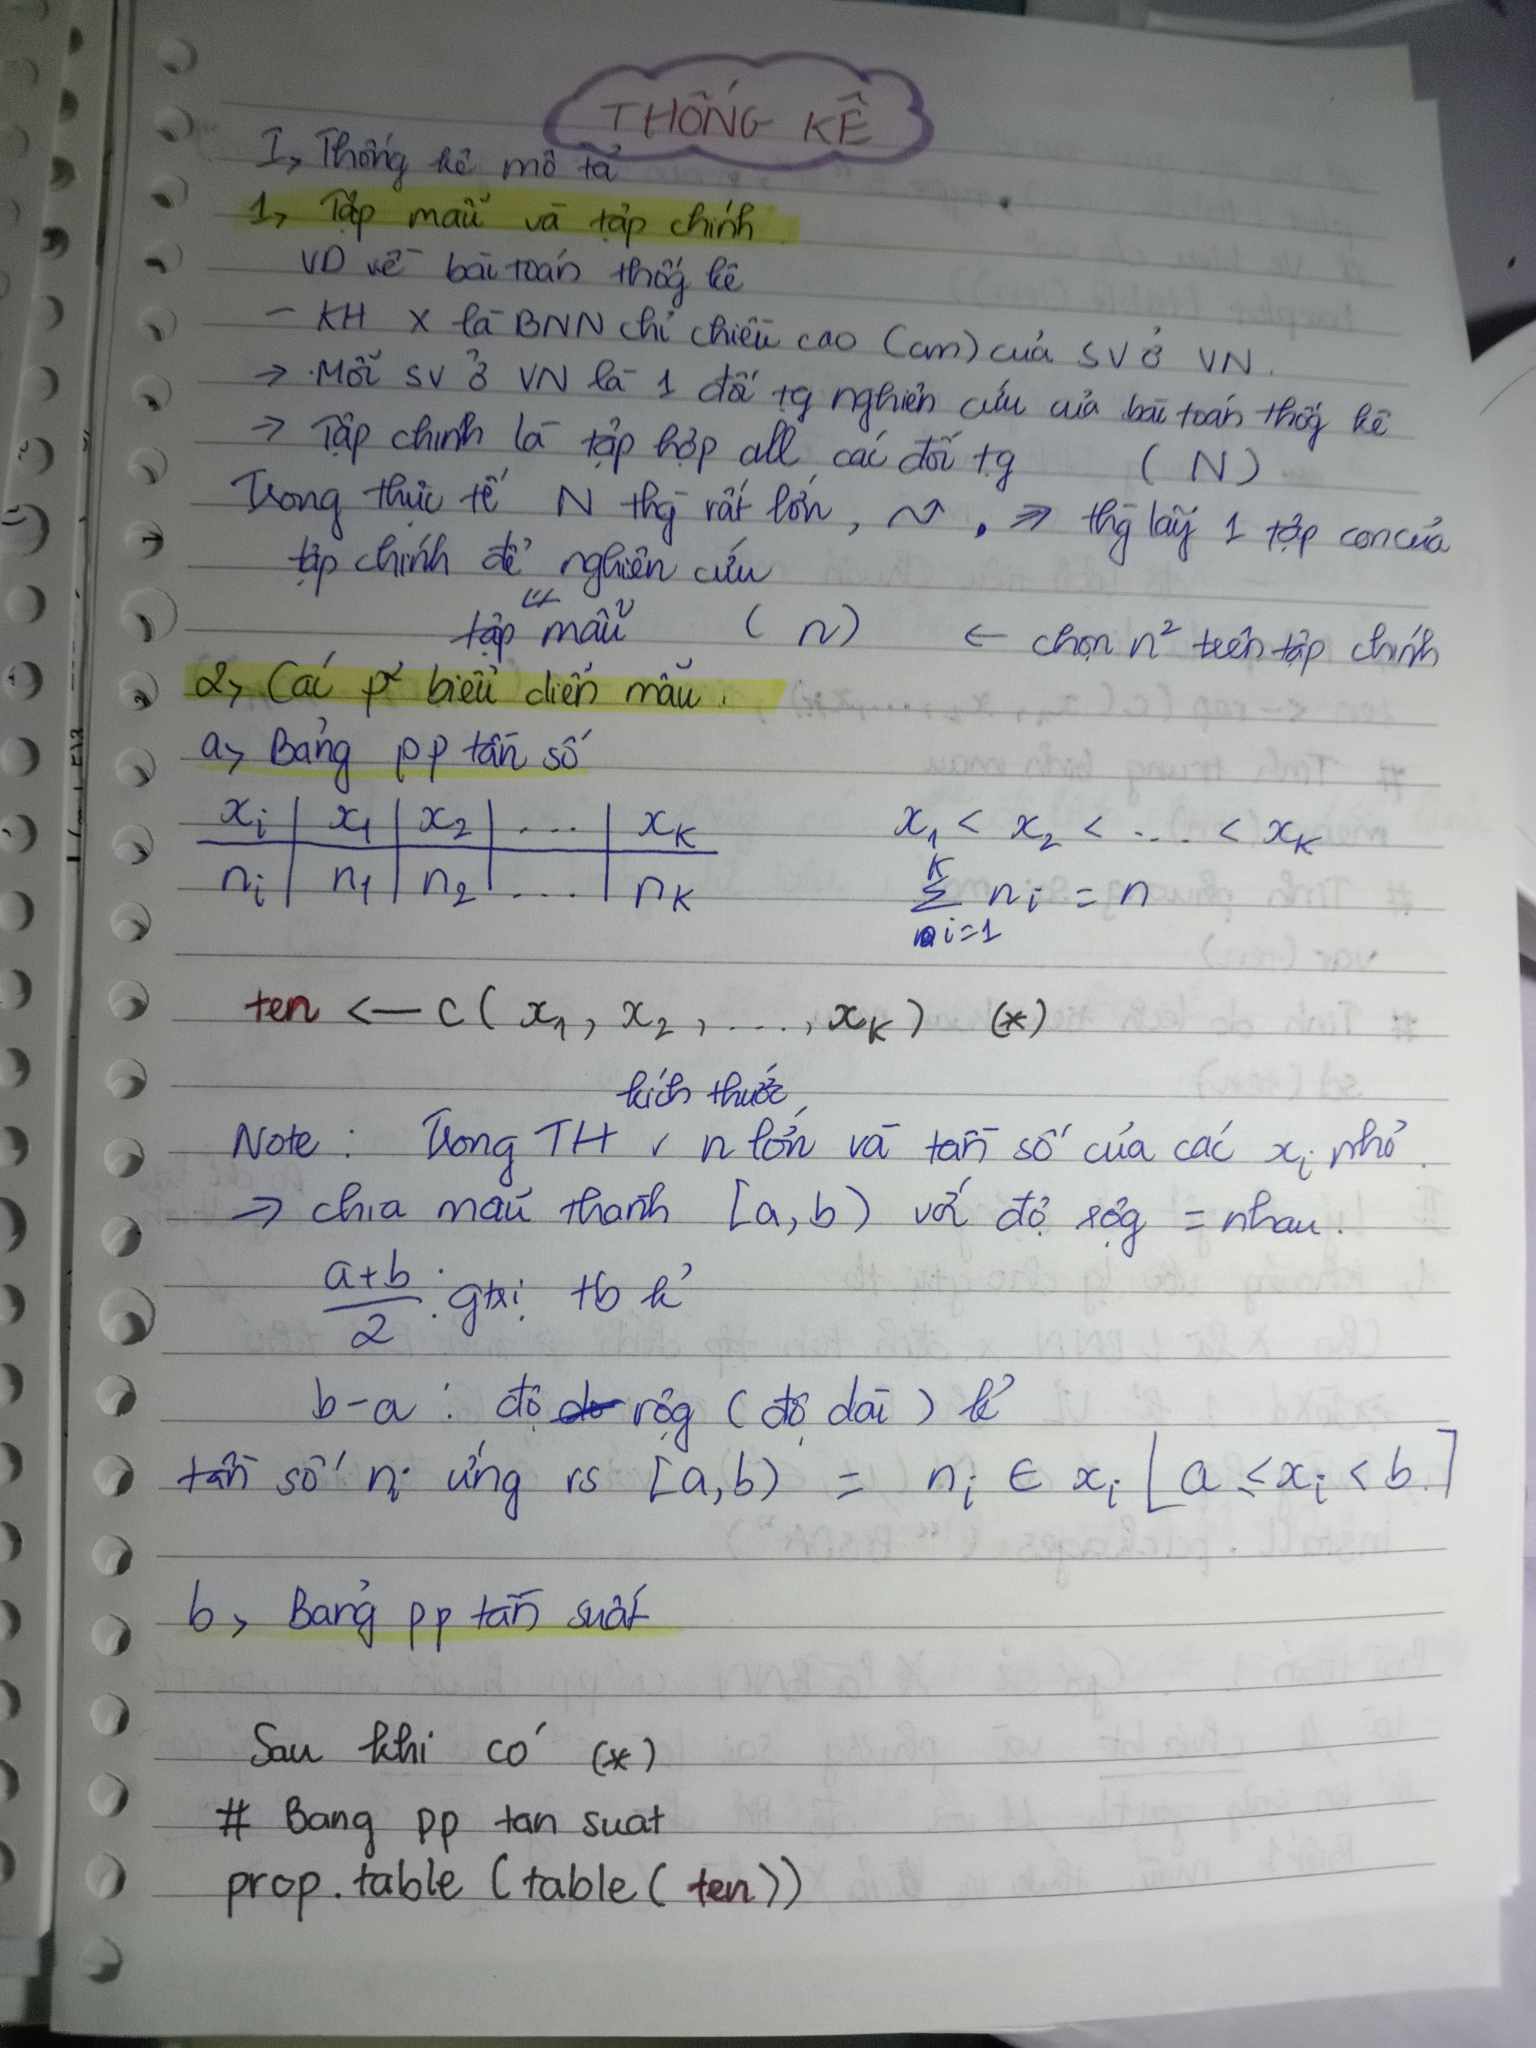 THỐNG KÊ
I, Thống kê mô tả
1, Tập mẫu và tập chính
VD về bài toán thốg kê
- KH X là BNN chỉ chiều cao (cm) của SV ở VN.
→ Mỗi SV ở VN là 1 đối tg nghiên cứu của bài toán thốg kê
→ Tập chính là tập hợp all các đối tg (N)
Trong thực tế N thg rất lớn, ⇒ thg lấy 1 tập con của
tập chính để nghiên cứu
tập mẫu (n) ← chọn n² trên tập chính
2, Các p² biểu diễn mẫu.
a, Bảng pp tần số
xᵢ | x₁ | x₂ | .... | xₖ x₁ < x₂ < .... < xₖ
nᵢ | n₁ | n₂ | .... | nₖ ∑ᵢ₌₁ᴷ nᵢ = n
ten <— c( x₁, x₂, ...., xₖ) (*)
kích thước
Note : Trong TH ✓ n lớn và tần số của các xᵢ nhỏ.
⇒ chia mẫu thành [a,b) với độ rộg = nhau.
(a+b)/2 : gtrị tb k²
b-a : độ rộg (độ dài) k²
tần số nᵢ ứng vs [a,b) = nᵢ ∈ xᵢ [a ≤ xᵢ < b.]
b, Bảng pp tần suất
Sau khi có (*)
# Bang pp tan suat
prop.table (table( ten))